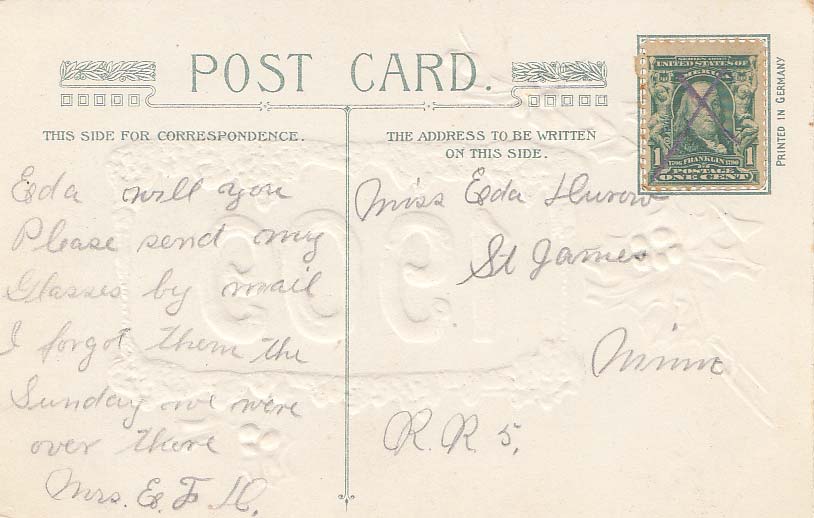 POST CARD.
THIS SIDE FOR CORRESPONDENCE.
Eda will you
Please send my
Glasses by mail
I forgot them the
Sunday we were
over there
Mrs. E. F. H.
THE ADDRESS TO BE WRITTEN
ON THIS SIDE.
Miss Eda
St James
Minn
R. R. 5.
SERIES 1902
UNITED STATES OF
AMERICA
1 FRANKLIN 1
POSTAGE
ONE CENT
PRINTED IN GERMANY
1909